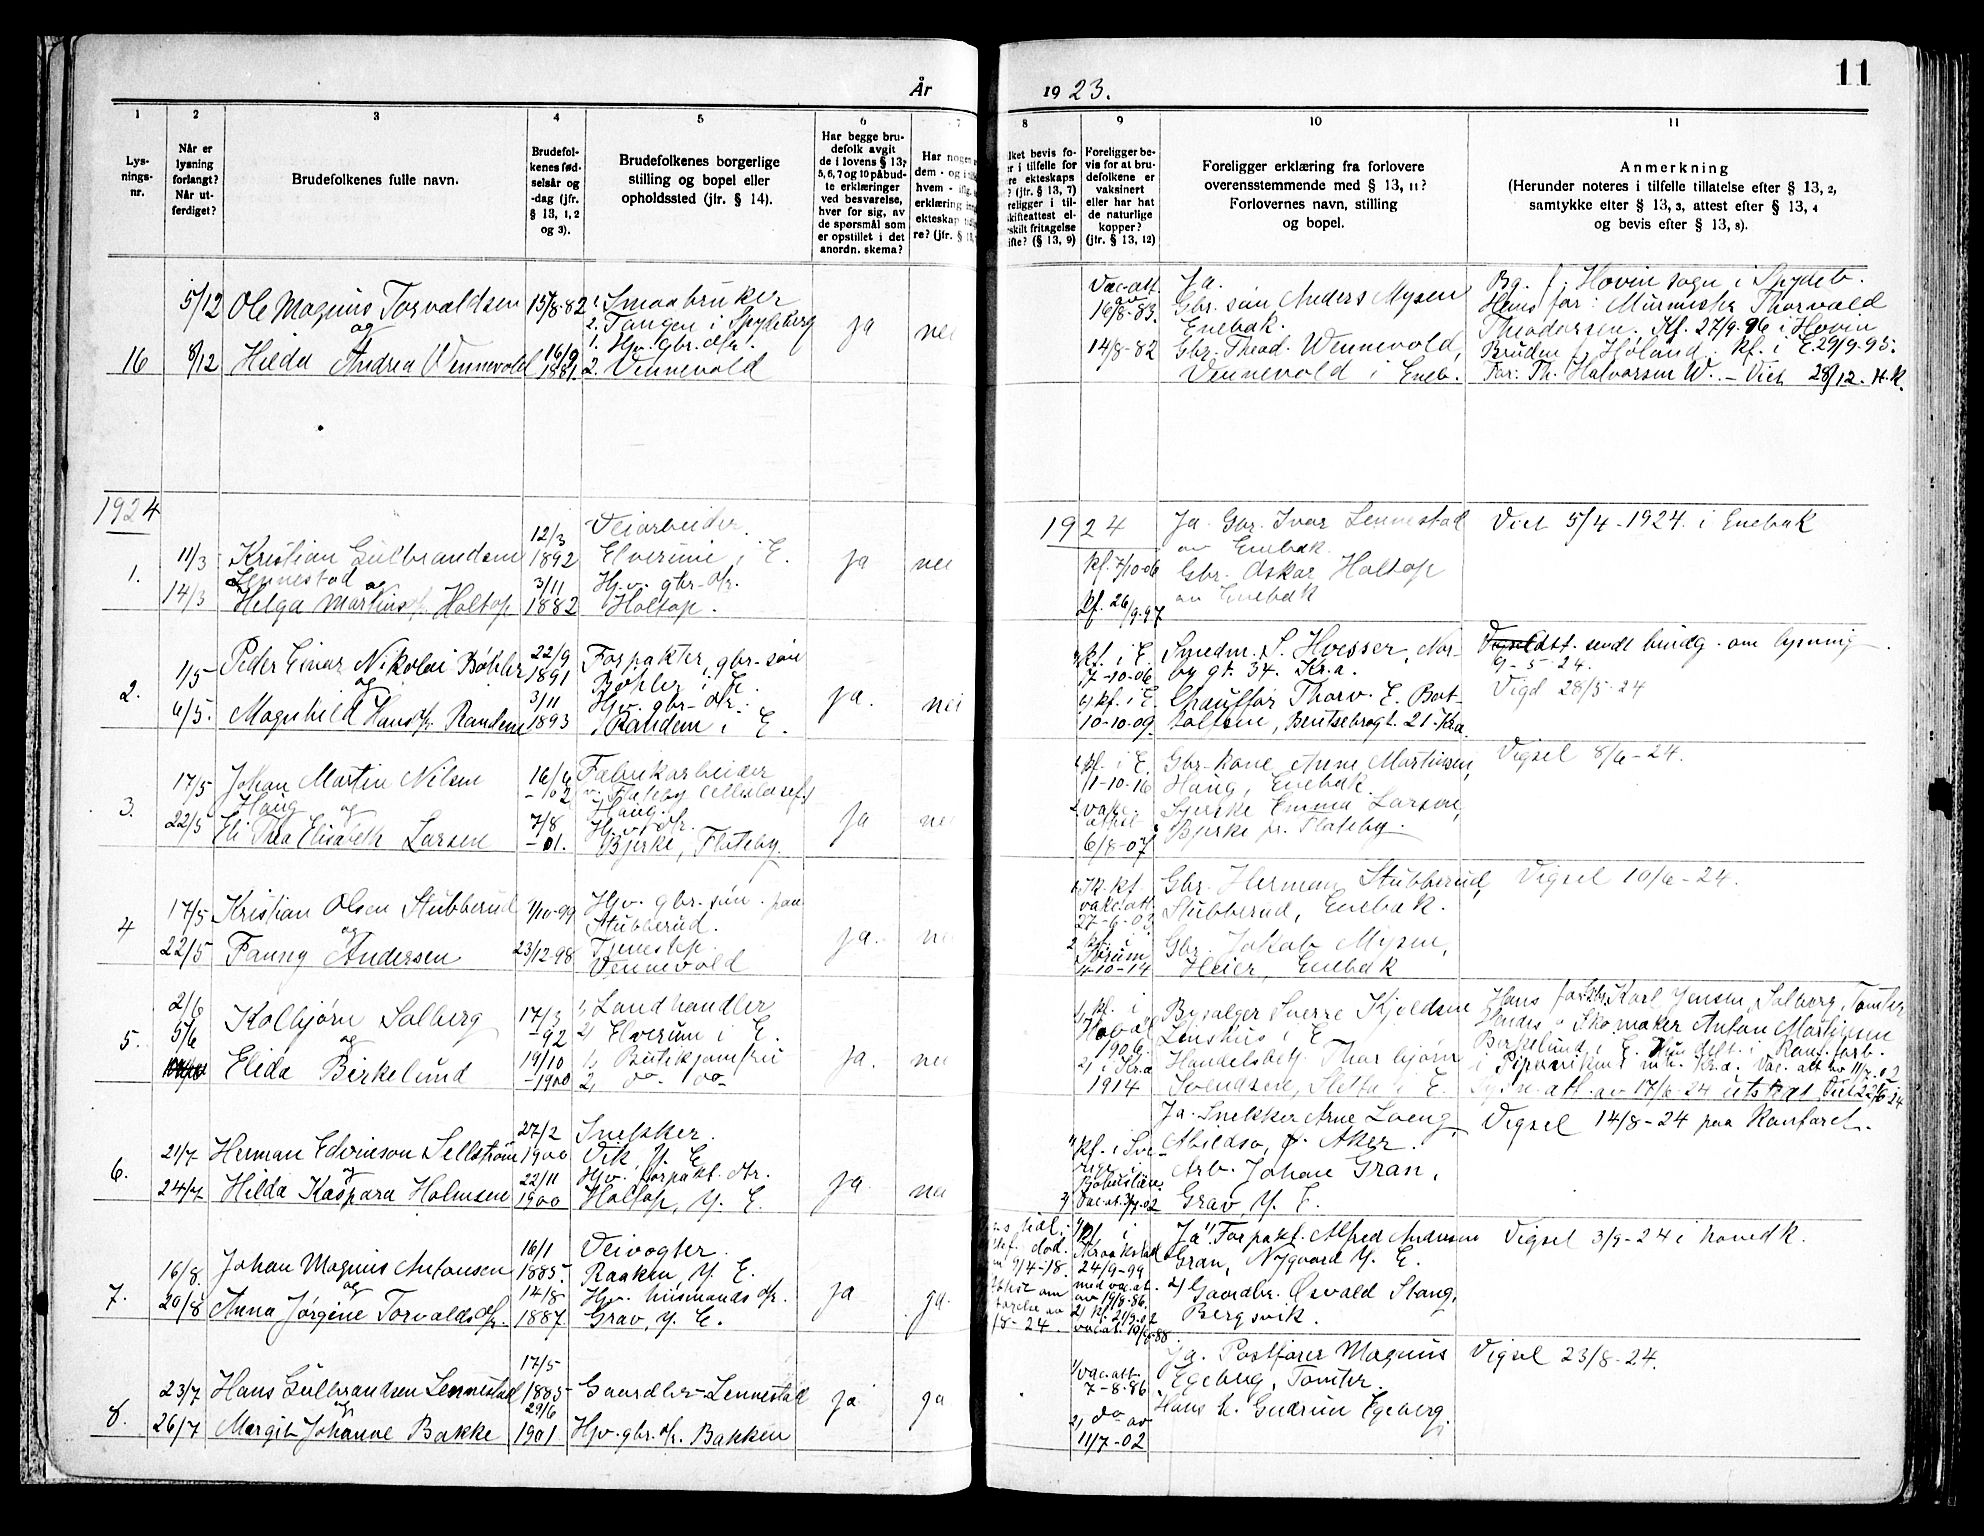 År
19 23.
11
1
2
3
4
5
6
7
8
9
10
11
Lys-
nings-
nr.
Når er
lysning
forlangt?
Når ut-
ferdiget?
Brudefolkenes fulle navn.
Brudefol-
kenes fød-
selsår og
-dag (jfr.
§ 13, 1, 2
og 3).
Brudefolkenes borgerlige
stilling og bopel eller
opholdssted (jfr. § 14).
Har begge bru-
defolk avgit
de i lovens § 13,
5, 6, 7 og 10 påbud-
te erklæringer
ved besvarelse,
hver for sig, av
de spørsmål som
er opstillet i det
anordn. skema?
Har nogen
dem - og i
hvem -
erklæring
ekteskap
re? (jfr. §
lket bevis fo-
r i tilfelle for
re ekteskaps
? (jfr. § 13, 7)
religger i til-
skifteattest el-
skilt fritagelse
ifte? (§ 13, 9)
Foreligger be-
vis for at bru-
defolkene er
vaksinert
eller har hat
de naturlige
kopper?
(jfr. § 13, 12)
Foreligger erklæring fra forlovere
overensstemmende med § 13, 11?
Forlovernes navn, stilling
og bopel.
Anmerkning
(Herunder noteres i tilfelle tillatelse efter § 13, 2,
samtykke efter § 13, 3, attest efter § 13, 4
og bevis efter § 13, 8).
16
5/12
8/12
Ole Magnus Torvaldsen
og
Hilda Andrea Vennevold
15/8-82
16/9
1881.
1. Smaabruker
2. Tangen i Spydeberg
1. Hv. gbr. dtr.
2. Vennevold
ja
nei
Vac-att.
av
16/8-83.
14/8-82
Ja.
Gbr. søn Anders Mysen
Enebak.
Gbr. Thead. Wennevold,
Vennevold i Eneb.
Bg. f. Hovin sogn i Spydeb.
Hans far: Thorvald
Theodorsen. Kf. 27/9-96 i Hovin
Bruden f. Høland. kf. i E. 29/9-95.
Far: Th. Halvorsen W. - Viet 28/12. H.K.
1924
1924
1.
11/3
14/3
Kristian Gulbrandsen
Lennestad
og
Helga Martinsdtr. Holtop
12/3
1892
3/11
1882
Veiarbeider.
Elverum i E.
Hv. gbr. dtr.
Holtop.
ja
nei
kf. 7/10-06
kf. 26/9-97
Ja. Gbr. Ivar Lennestad
av Enebak.
Gbr. Oskar Holtop
av Enebak
Viet 5/4-1924 i Enebak
2.
1/5
6/5.
Peder Einar Nikolai Bøhler
og
Magnhild Hansdtr. Randem
22/9
1891
3/11
1893
Forpakter, gbr-søn
Bøhler i E.
Hv. gbr-dtr.
Randem i E.
ja.
nei
kf. i E.
17-10-06
kf. i E
10-10-09.
Smedm. S. Hvesser, Nor-
by gt. 34. Kr.a.
Chauffør Thorv. E. Bot-
tolfsen, Bentsebrogt. 21. Kr.a.
sendt om lysning
9-5-24.
Vigd 28/5-24
3.
17/5
22/5
Johan Martin Nilsen
Haug
og
Eli Thea Elisabeth Larsen
16/6
-02
7/8
-01.
Fabrikarbeider
Haug.
Hv. dtr.
Bjerke, Flateby.
ja
nei
kf. i E.
1-10-16
vakc.
attest
6/8-07
Gbr-kone Anne Martinsen,
Haug, Enebak.
Emma Larsen,
Bjerke pr. Flateby.
Vigsel 8/6-24.
4
17/5
22/5
Kristian Olsen Stubberud
og
Fanny Andersen
1/10-99
23/12-98
Hv. gbr-søn. paa
Stubberud.
Tjenestep.
Vennevold
ja.
nei
vakc att.
27-6-03
2 kf.
11-10-14
Gbr. Herman Stubberud,
Stubberud, Enebak.
Gbr. Jakob Mysen,
Heier, Enebak
Vigsel 10/6-24.
5.
2/6
5/6
Kolbjørn Solberg
og
Elida Birkelund
17/3
-92
19/10
-1900
1) Landhandler
2) Elverum i E.
1) Butikjomfru
2) do do
ja.
nei
1) kf. i
1906
2) i Kr.a
1914
Bysælger Sverre Kjeldsen
Lenshus i E
Handelsbetj. Thorbjørn
Svendsen, Sletta i E.
Hans far Karl Jensen Solberg, Tomter
Hendes " Skomaker Anton Martinsen
Birkelund i E.
Vac. att av 11/7-02
av 17/6-24 Viet 22/6 24
6.
21/7
24/7
Herman Edvinson Sellstrøm
og
Hilda Kaspara Holmsen
27/2
1900
22/11
1900
Snekker.
Vik, Y. E.
Hv. forpakt. dtr.
Holtop, Y. E.
ja.
nei
1) kf. i Sve-
rige i
Bohuslän
2) Vac-at. 3/7-02
Ja. Snekker Arne Loeng,
Abildsø, Ø. Aker.
Arb. Johan Gran,
Grav, Y. E.
Vigsel 14/8-24 paa Kontoret.
7.
16/8.
20/8
Johan Magnus Antonsen
og
Anna Jørgine Torvaldsdtr.
16/1
1885.
14/8
1887.
Veivogter.
Raaken, Y. E.
Hv. husmandsdtr.
Grav, Y. E.
ja
ja.
død.
9/4-18.
18-24.
1) kf. i
Kraakstad
24/9-99
med vac. at.
av 19/8-86.
2) kf. 21/9-02
vac. at. 10/8-88
Ja 1) Forpakt. Alfred Andersen
Gran, Nygaard Y. E.
2) Gaardbr. Osvald Stang,
Bergsvik.
Vigsel 3/9-24 i hovedk.
8.
23/7
26/7
Hans Gulbrandsen Lennestad
og
Margit Johanne Bakke
17/5
1885
29/6
1901
Gaardbr-Lennestad
Hv. gbr. dtr. Bakken
ja
ja
1) vac. att.
7-8-86
2) do av
11/7-02
Ja. Postfører Magnus
Egeberg, Tomter.
Hans h. Gudrun Egeberg,
Vigsel 23/8-24.